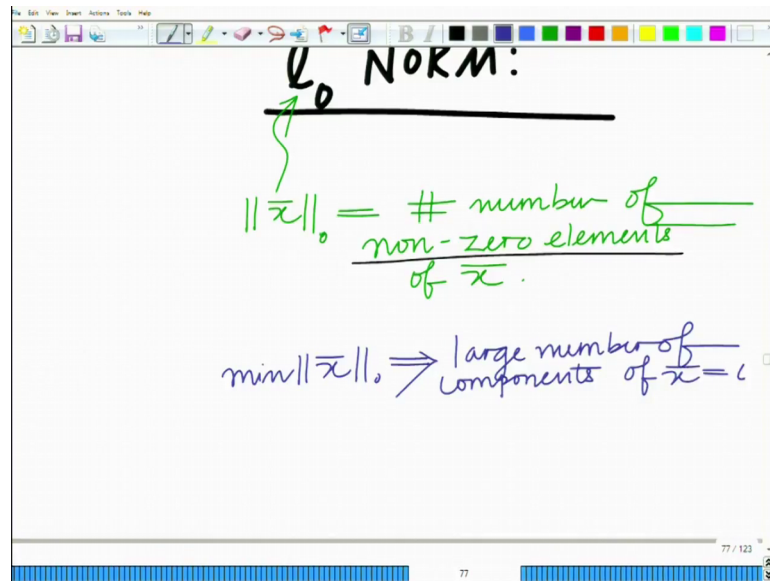 File Edit View Insert Actions Tools Help
B I
l₀ NORM:
||x̄||₀ = # number of
non-zero elements
of x̄.
min ||x̄||₀ ⇒ large number of
components of x̄ =
77 / 123
77